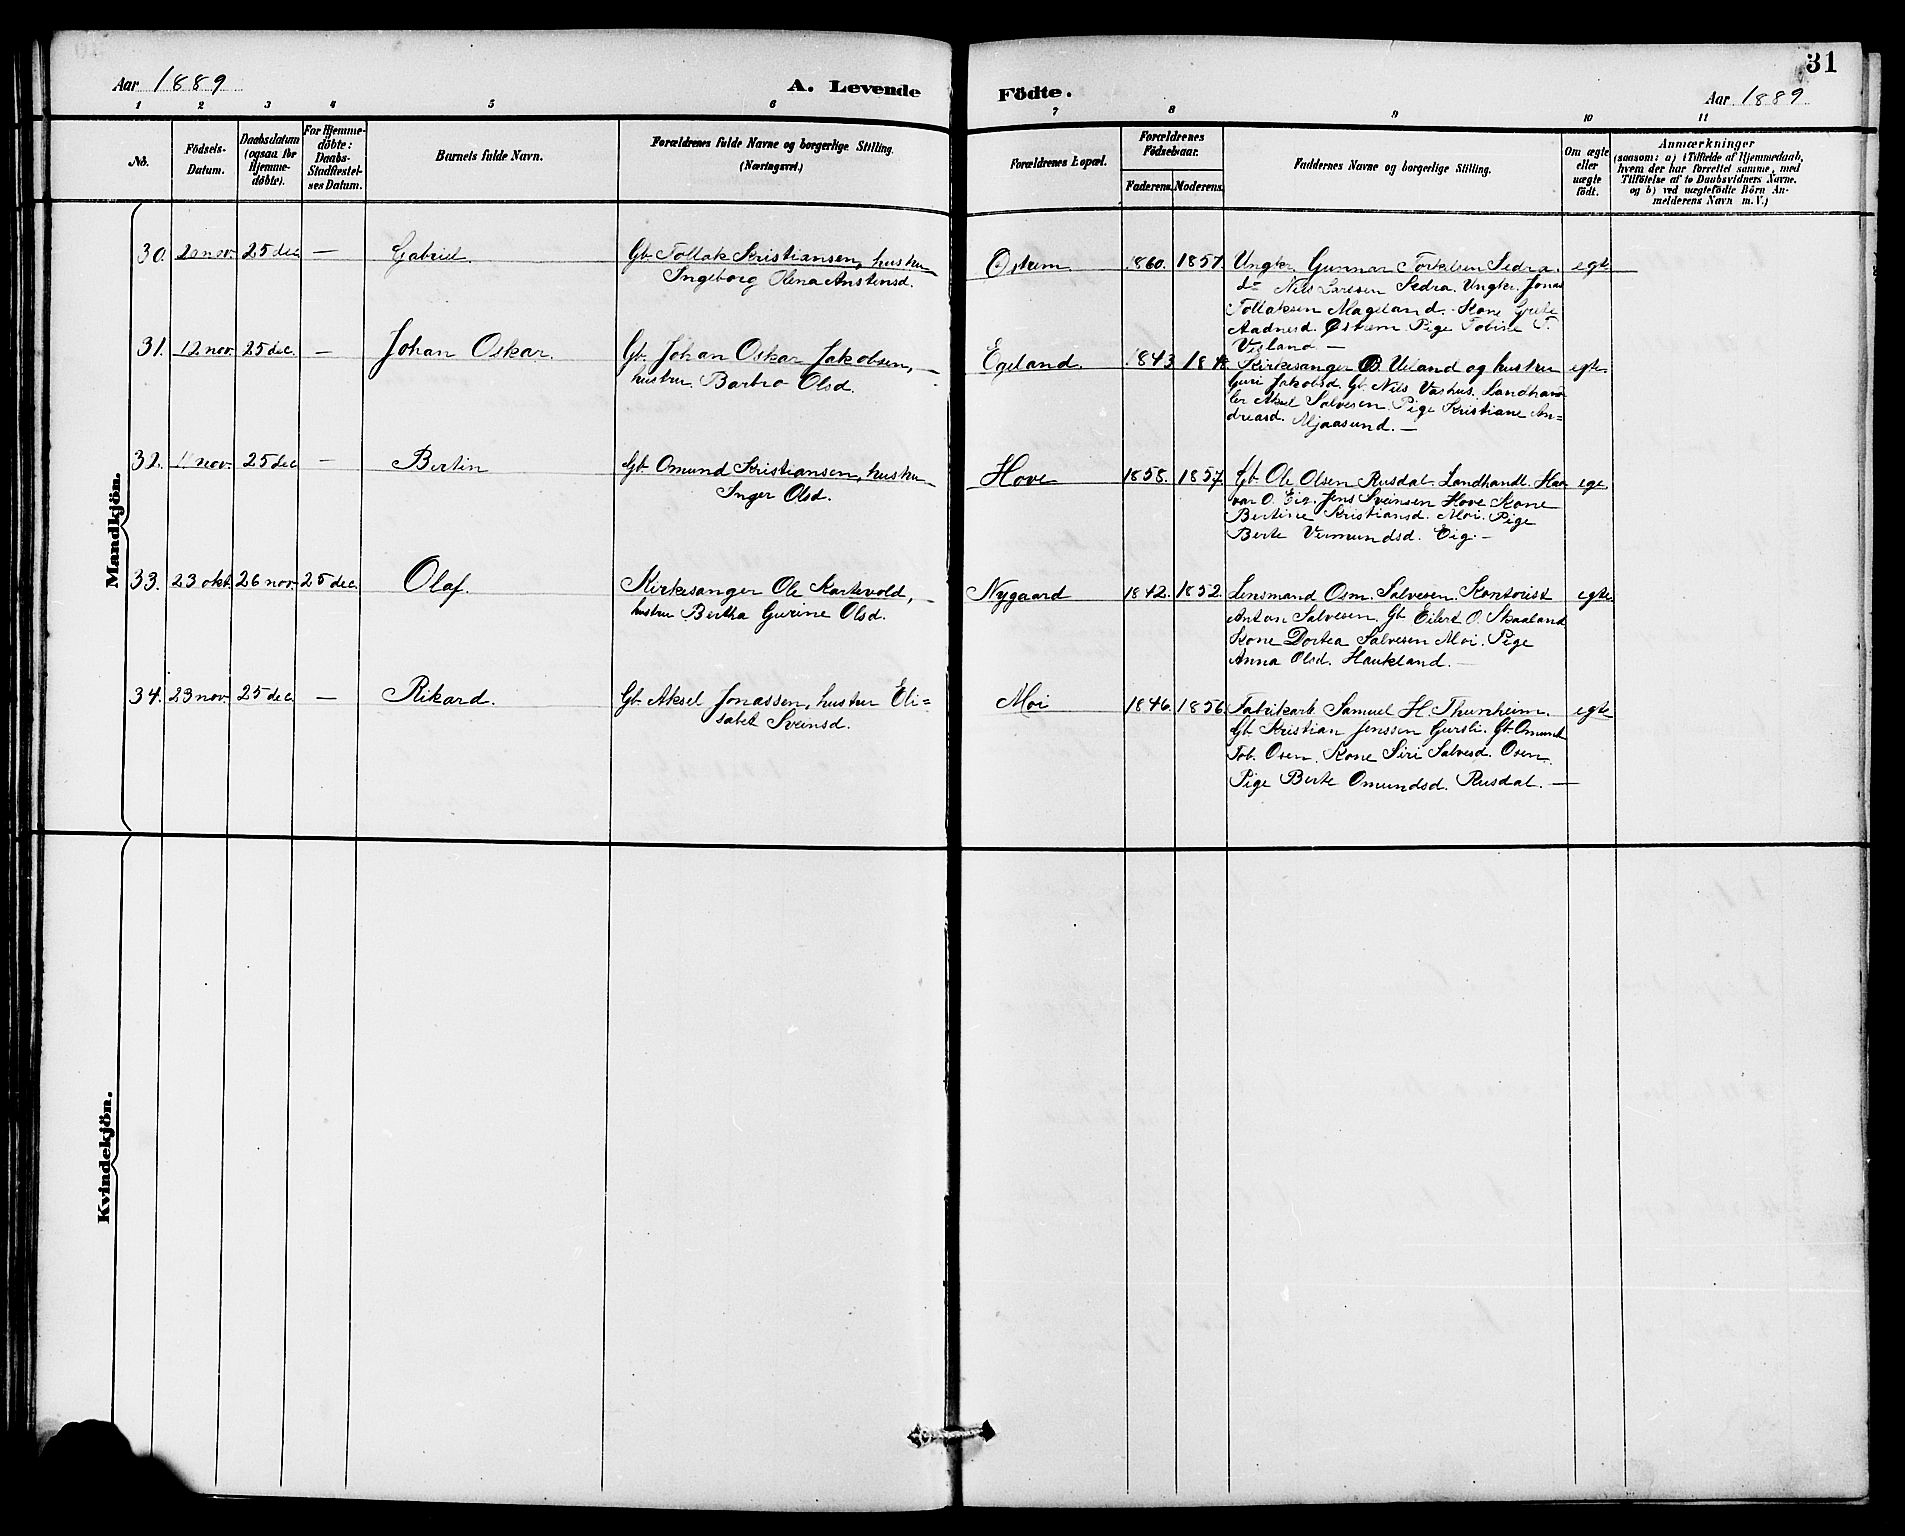 31
Aar 1889
A. Levende Födte.
Aar 1889
1 2 3 4 5 6 7 8 9 10 11
No.
Födsels-
Datum.
Daabsdatum
(ogsaa for
Hjemme-
døbte).
For Hjemme-
døbte:
Daabs-
Stadfæstel-
ses Datum.
Barnets fulde Navn.
Forældrenes fulde Navne og borgerlige Stilling.
(Næringsvei.)
Forældrenes Bopæl.
Forældrenes
Födselsaar.
Faderens. Moderens.
Faddernes Navne og borgerlige Stilling.
Om ægte
eller
uægte
födt.
Anmærkninger
(saasom: a) i Tilfælde af Hjemmedaab,
hvem der har forrettet samme, med
Tilföielse af to Daabsvidners Navne.
og b) ved uægtefödte Börn An-
melderens Navn m. V.)
Mandkjön.
30. 20 nov. 25 dec — Gabriel
Gb. Tollak Kristiansen, hustru
Ingeborg Olena Anstensd.
Østrem 1860. 1857
Ungkr. Gunnar Torkelsen Sedra.
do Nils Larsen Sedra. Ungkr. Jonas
Tollaksen Mageland. Kone Grete
Aadnesd. Østrem. Pige Tobine T.
Veiland —
egte
31. 12 nov 25 dec. — Johan Oskar.
Gb. Johan Oskar Jakobsen, —
hustru Barbro Olsd.
Egeland. 1843
Kirkesanger B. Ueland og hustru
Guri Jakobsd. Gb. Nils Vashus. Landhand
ler Aksel Salvesen. Pige Kristiane An=
dreasd. Mjaasund. —
egte
32. 11 nov. 25 dec — Bertin
Gb. Omund Kristiansen, hustru
Inger Olsd.
Hove 1858. 1857.
Gb. Ole Olsen Rusdal. Landhandl. Haa
var O. Eig. Jens Sveinsen Hove Kone
Bertine Kristiansd. Moi. Pige
Berte Vermundsd. Eig. —
egte
33. 23 okt. 26 nov. 25 dec. Olaf.
Kirkesanger Ole Kartevold, —
hustru Bertha Gurine Olsd.
Nygaard 1842. 1852.
Lensmand Osm. Salvesen. Kontorist
Anton Salvesen. Gb. Eilert O. Skaaland
Kone Dortea Salvesen Moi. Pige
Anna Olsd. Haukland. —
egte
34. 23 nov. 25 dec — Rikard.
Gb. Aksel Jonassen, hustru Eli=
sabet Sveinsd.
Moi 1846. 1856.
Fabrikarb. Samuel H. Thunheim.
Gb. Kristian Jenssen Gursli. Gb. Omund
Tob. Osen. Kone Siri Salvesd. Osen.
Pige Berte Omundsd. Rusdal. —
egte
Kvindekjön.